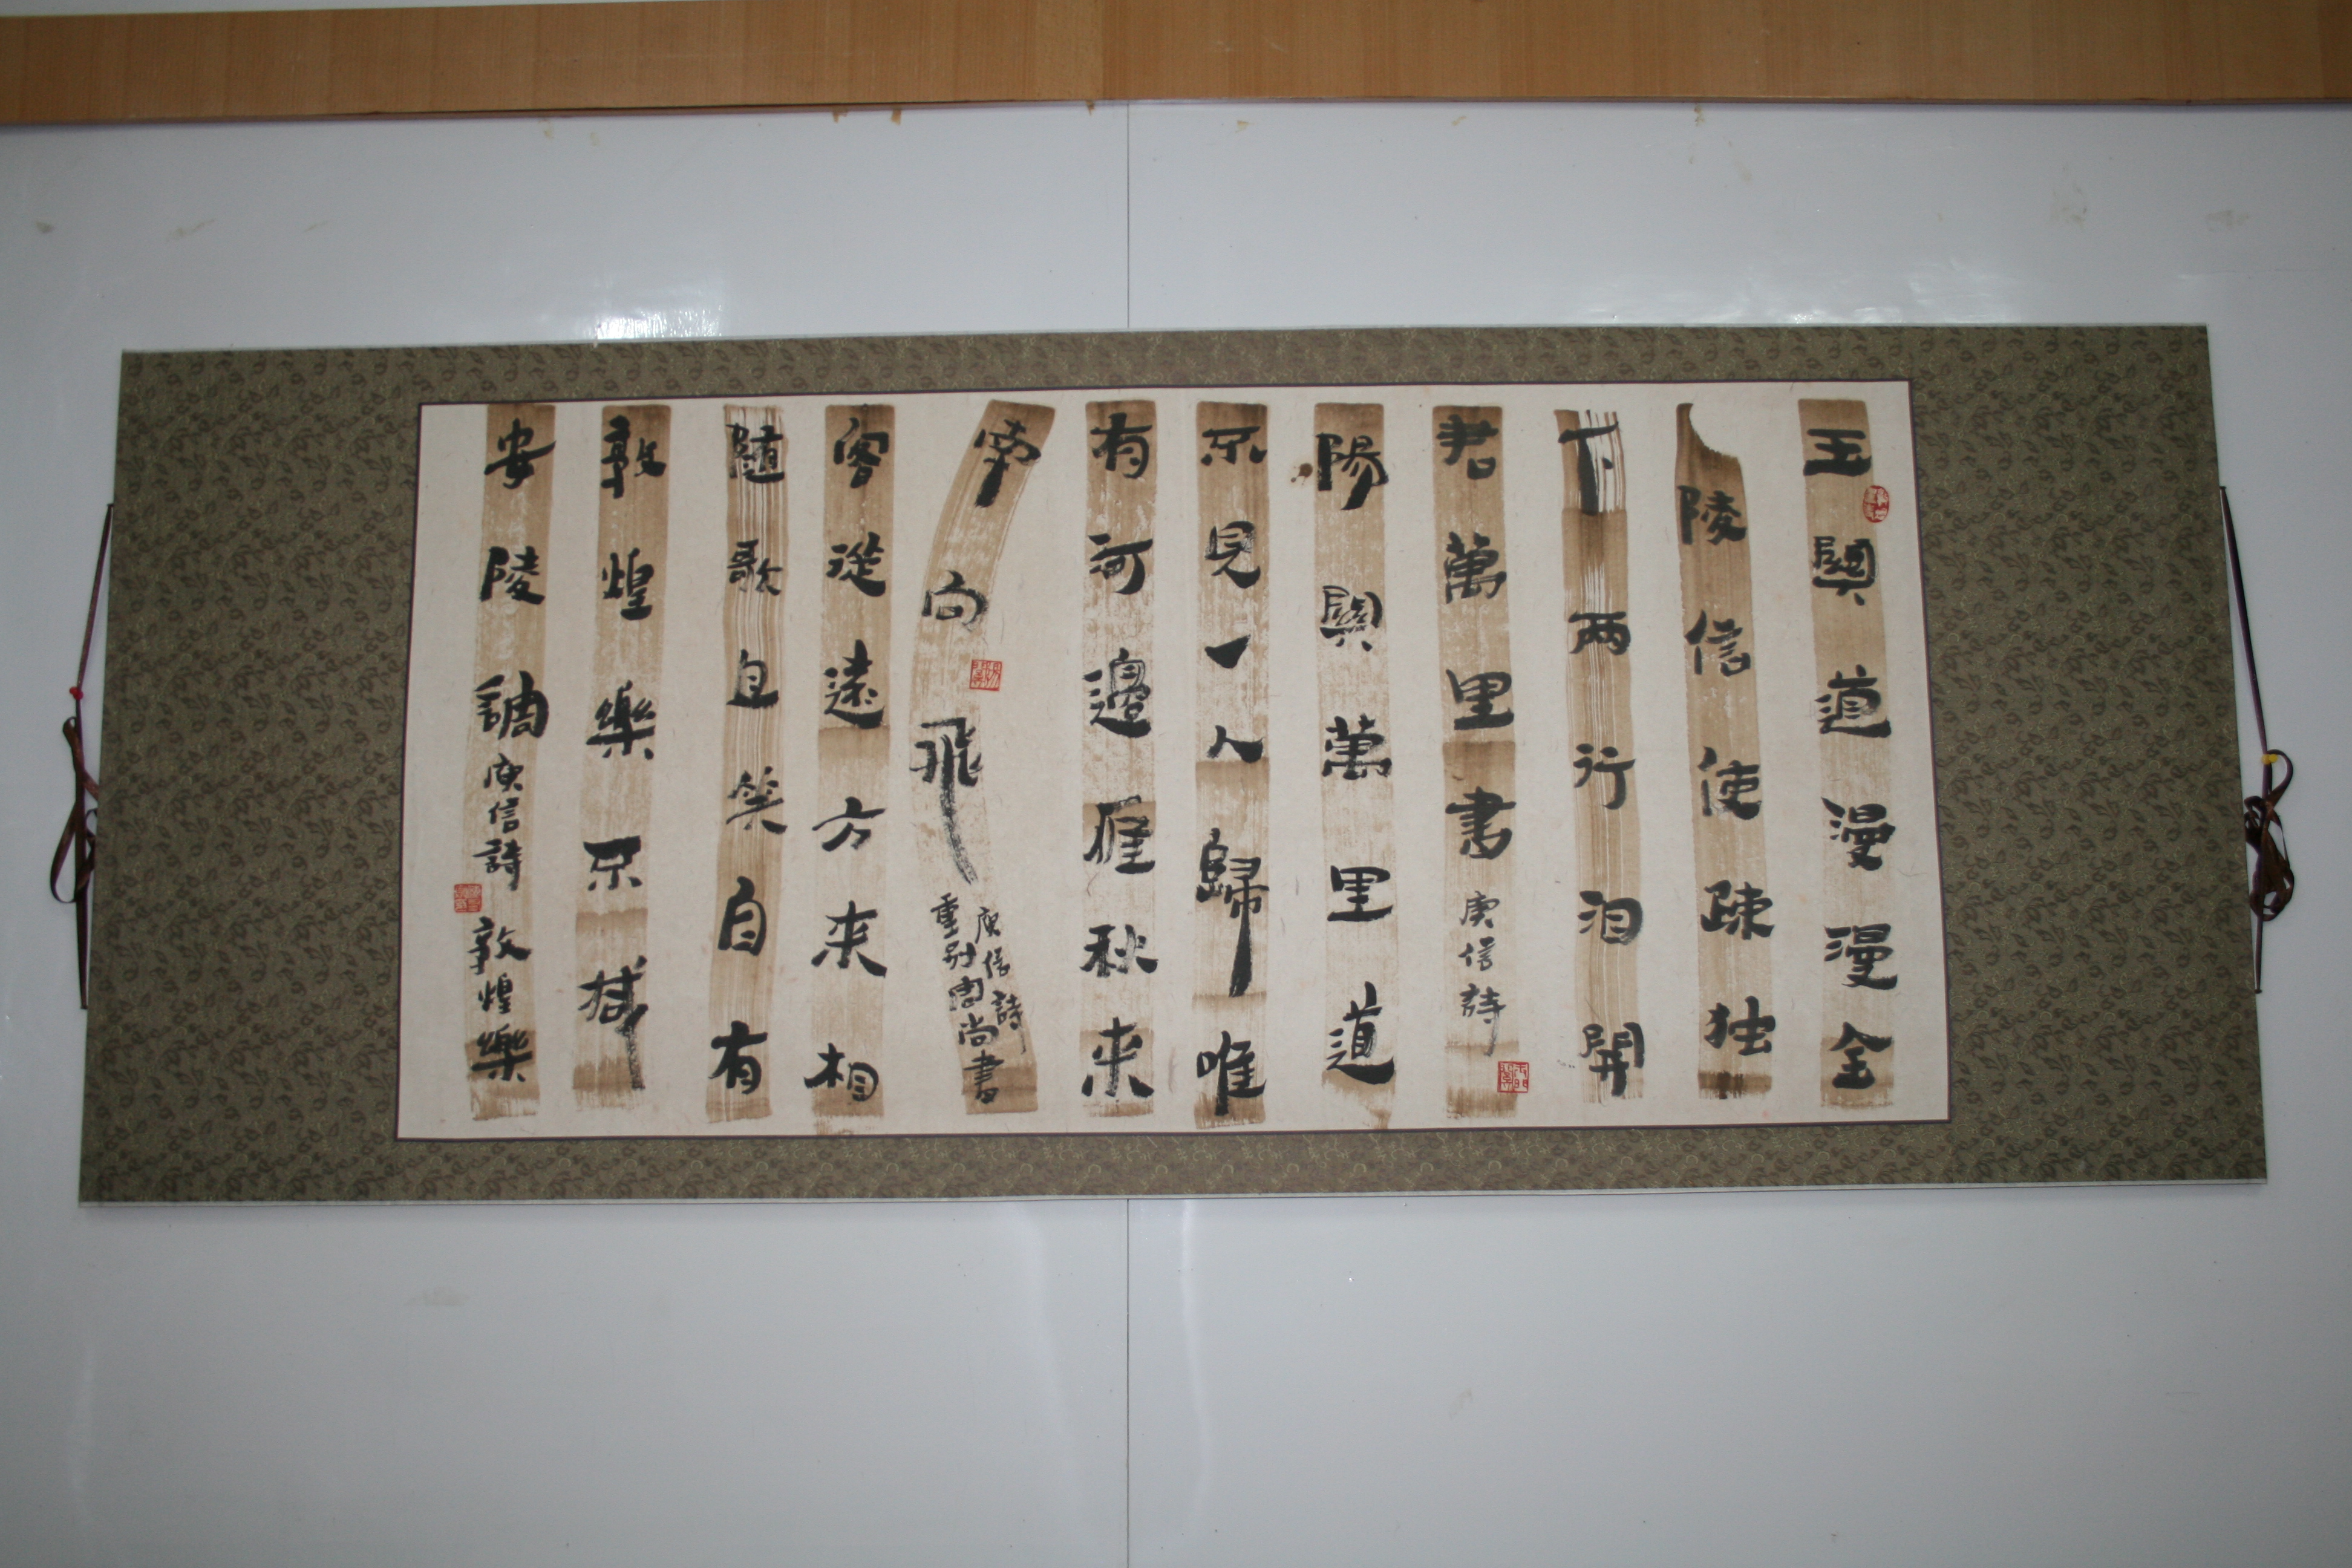 玉關道漫漫金
陵信使疎独
下两行泪開
君萬里書 庾信詩
陽關萬里道
不見一人歸唯
有河邊雁秋來
南向飛 庾信詩
重別周尚書
客從遠方來相
隨歌且笑自有
敦煌樂不減
安陵調 庾信詩 敦煌樂